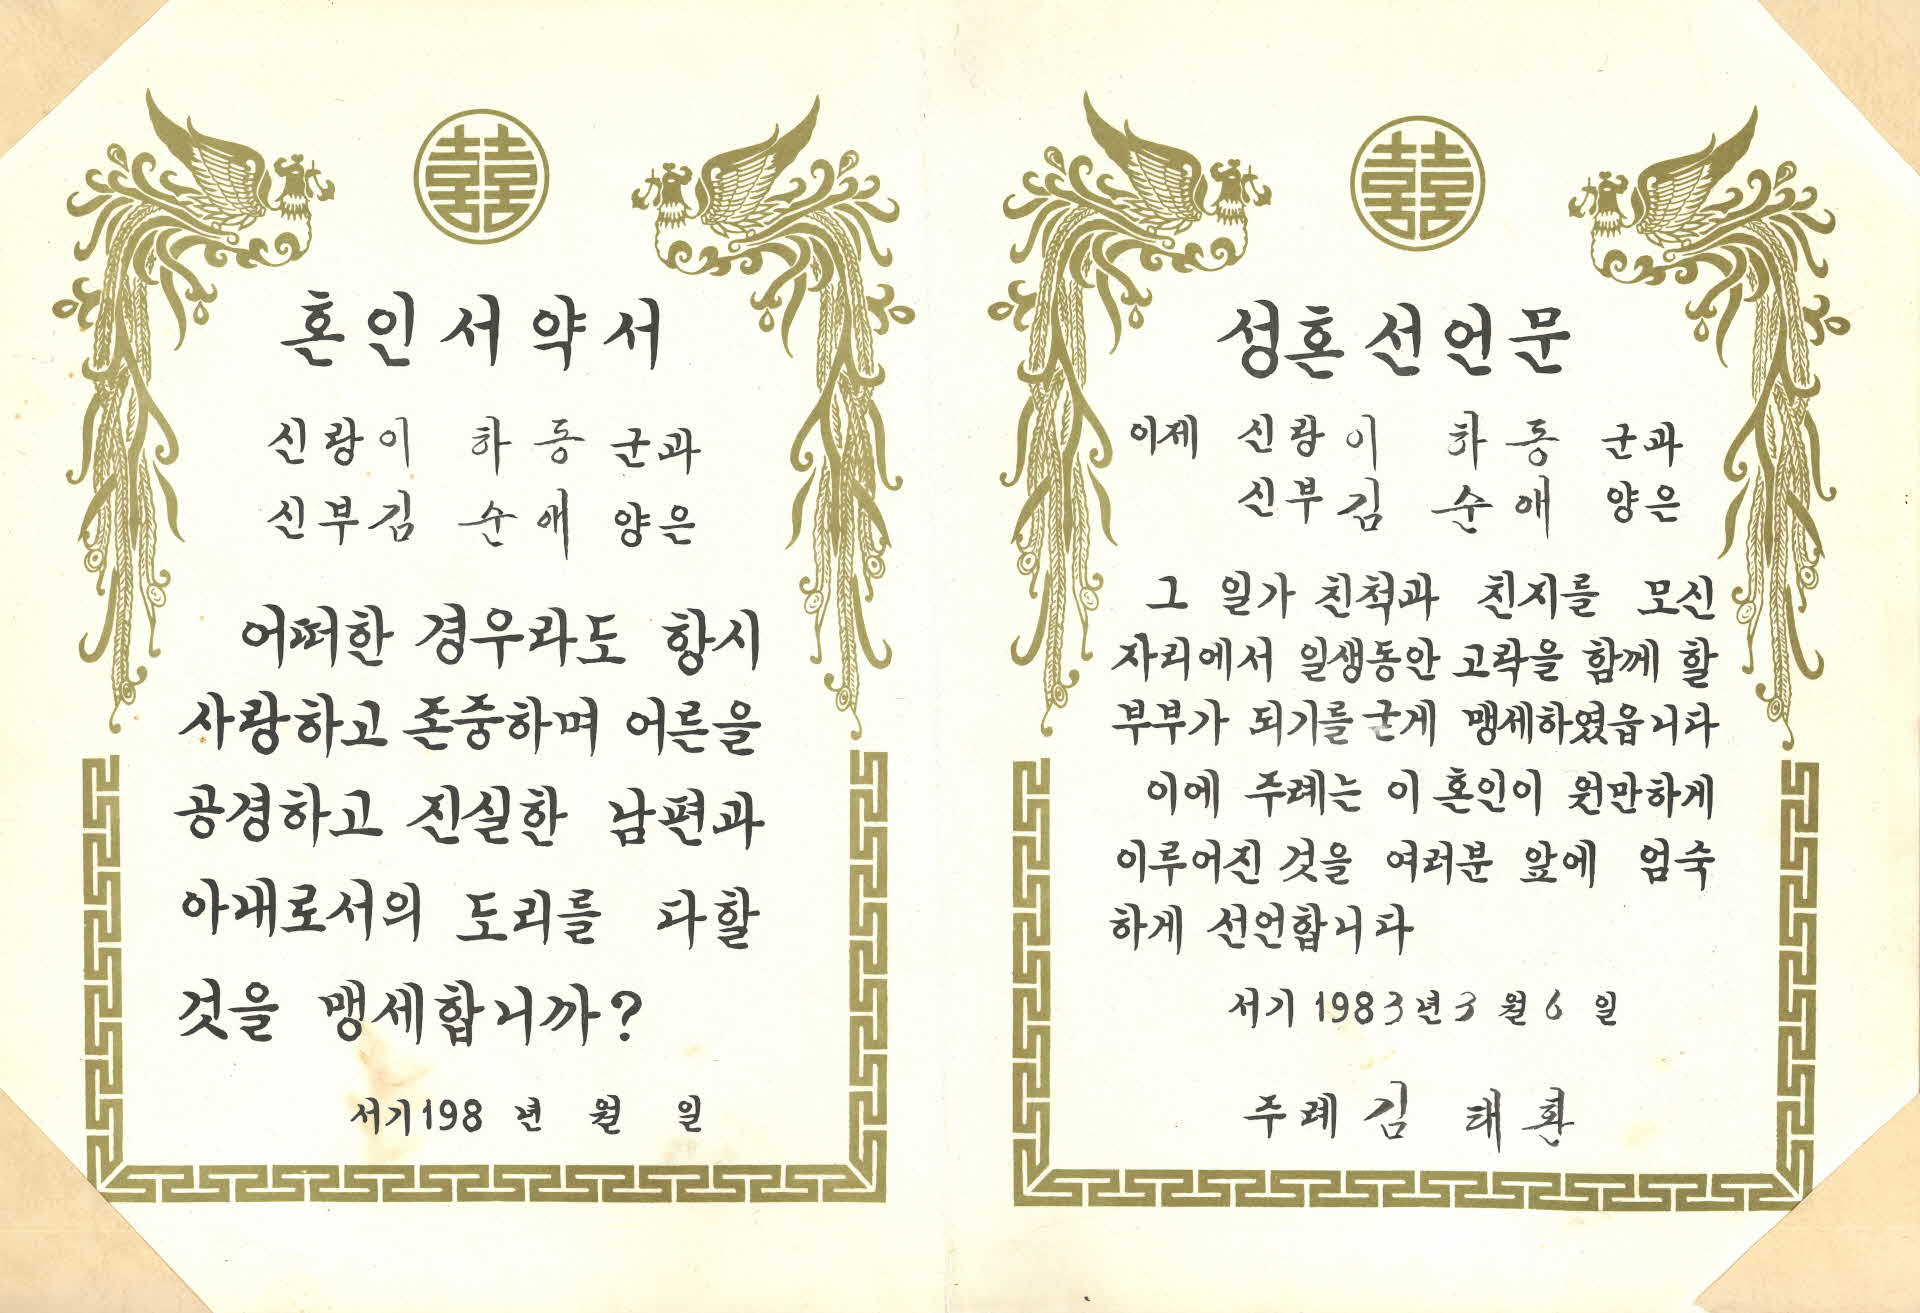 囍
혼인서약서
신랑 이 하 동 군과
신부 김 순 애 양은
어떠한 경우라도 항시
사랑하고 존중하며 어른을
공경하고 진실한 남편과
아내로서의 도리를 다할
것을 맹세합니까?
서기 198 년 월 일
囍
성혼선언문
이제 신랑 이 하 동 군과
신부 김 순 애 양은
그 일가 친척과 친지를 모신
자리에서 일생동안 고락을 함께 할
부부가 되기를 굳게 맹세하였읍니다
이에 주례는 이 혼인이 원만하게
이루어진 것을 여러분 앞에 엄숙
하게 선언합니다
서기 1983년 3월 6일
주례 김 태 환